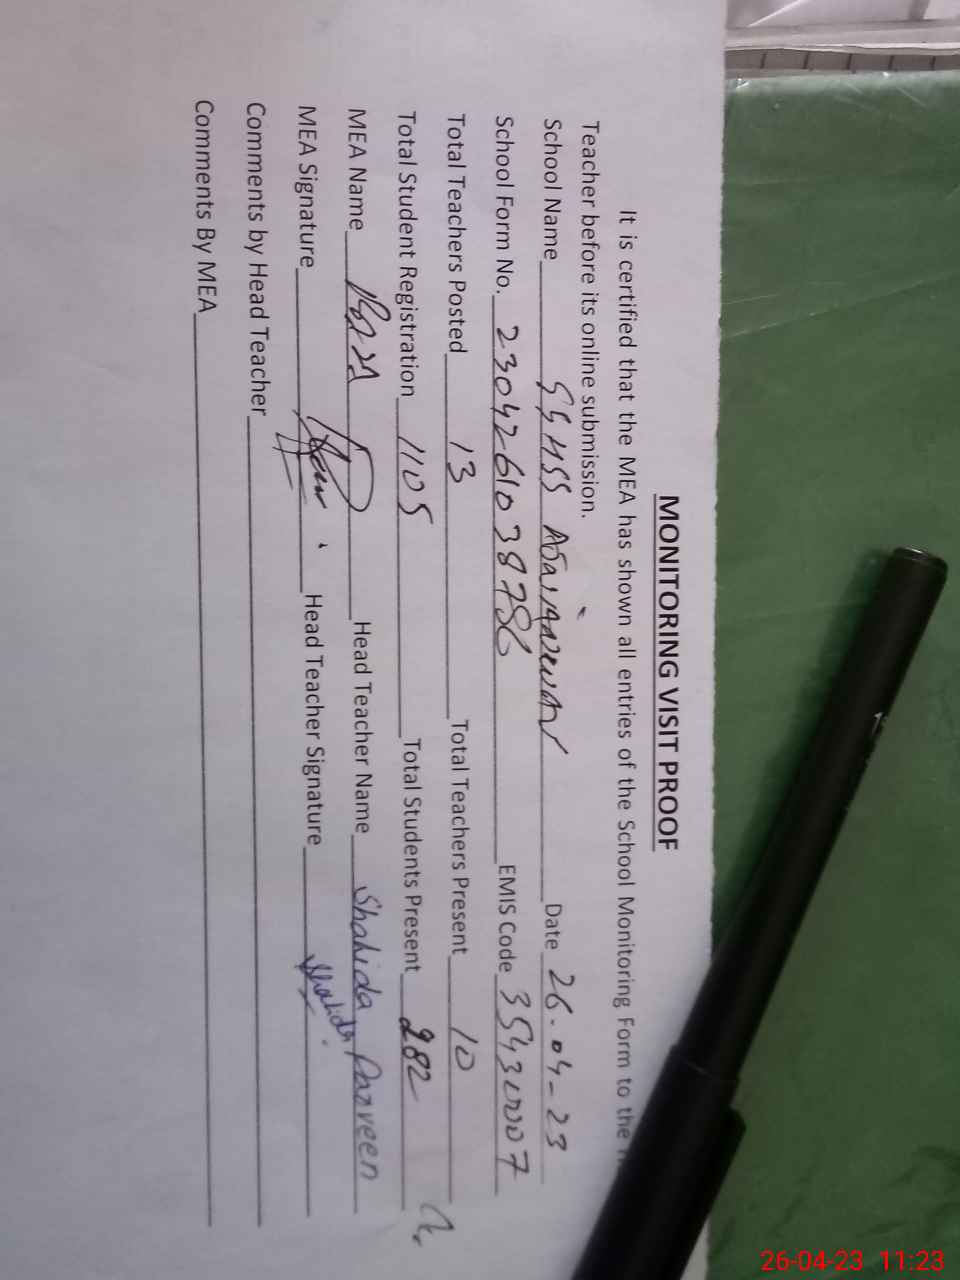 MONITORING VISIT PROOF
It is certified that the MEA has shown all entries of the School Monitoring Form to the
Teacher before its online submission.
School Name GGHSS Date 26-04-23
School Form No. 2304261038786 EMIS Code 35430007
Total Teachers Posted 13 Total Teachers Present 10
Total Student Registration 1105 Total Students Present 282
MEA Name Head Teacher Name Shahida Parveen
MEA Signature Head Teacher Signature Shahida
Comments by Head Teacher
Comments By MEA
26-04-23 11:23